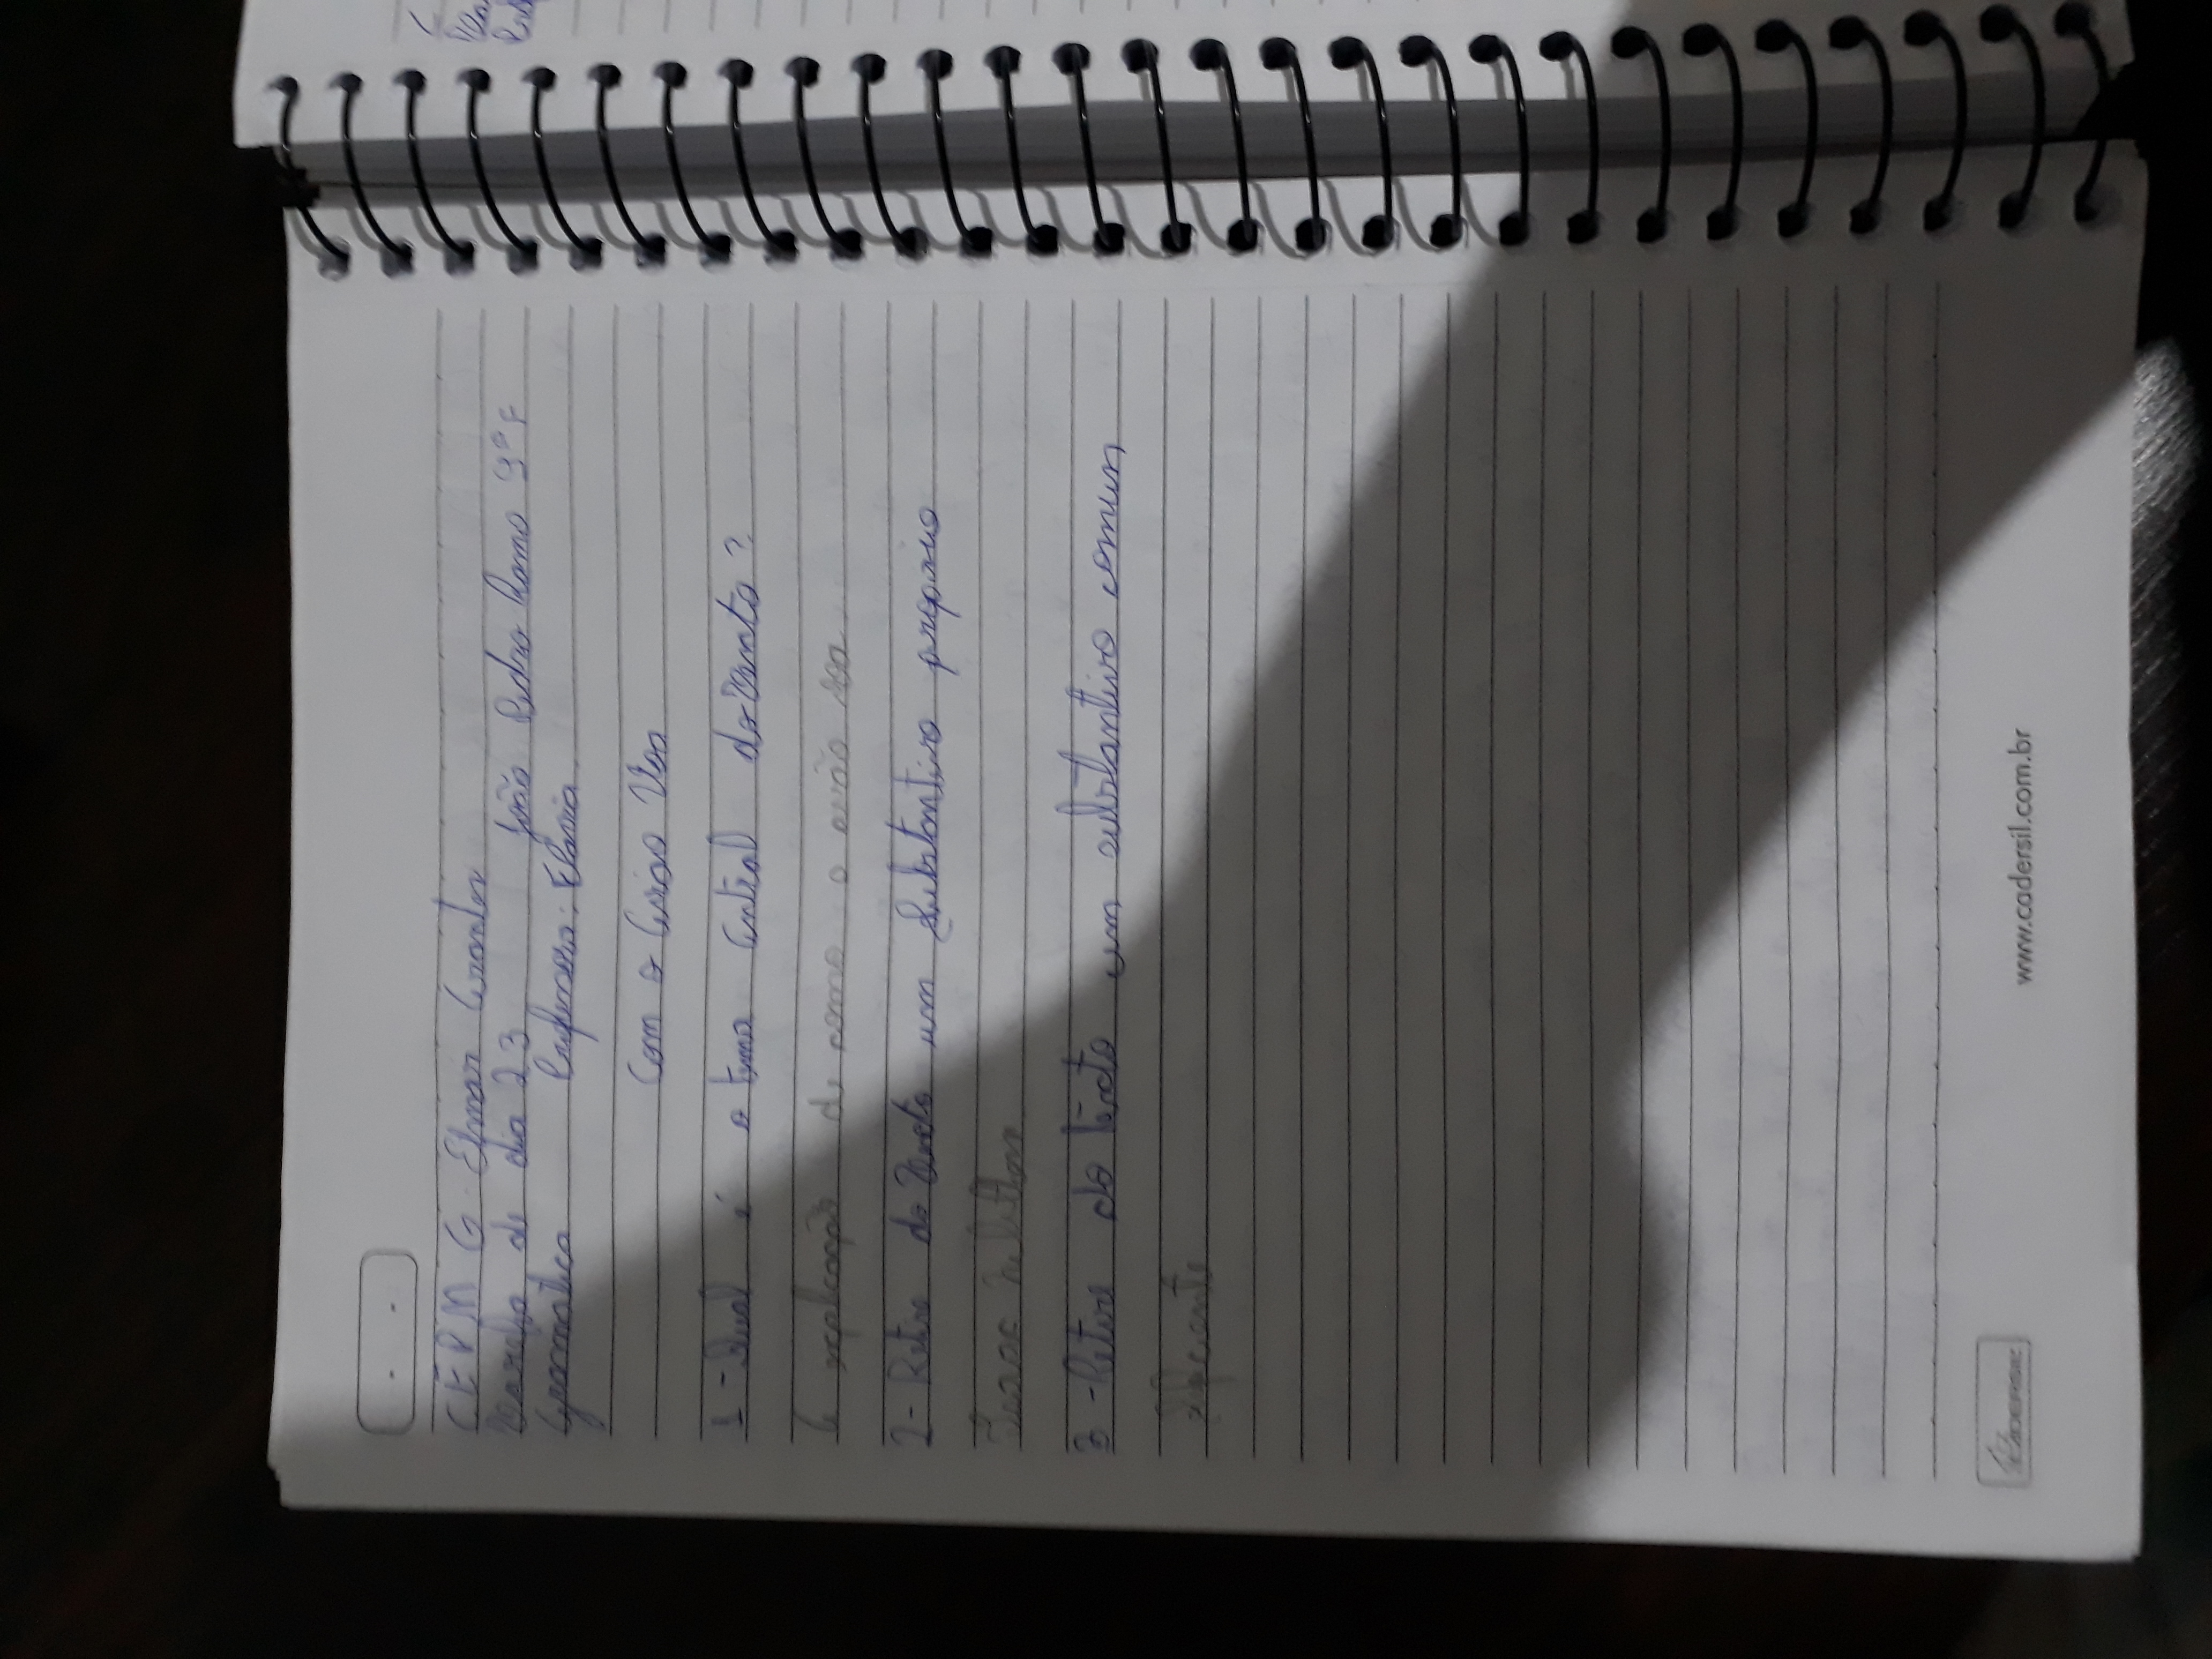 CEPM G Elmar
de dia 23 João Pedro Ramo 9º F
Gramatica Professora: Flavia
Com o Voa
1 - Qual é o tema Central do Texto?
A explicação de como o avião voa
2 - Retire do Texto um Substantivo proprio
Isaac
3 - Retire do texto um substantivo comum
CADERSIL
www.cadersil.com.br